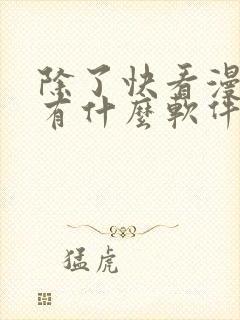 除了快看漫
有什麼軟件
猛虎